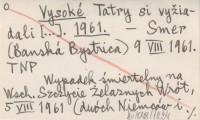 Vysoké Tatry si vyžia-
dali [...]. 1961. – Smer
(Banská Bystrica) 9 VIII 1961.
TNP
Wypadek śmiertelny na
Wsch. Szczycie Żelaznych Wrót,
5 VIII 1961 (dwóch Niemców i